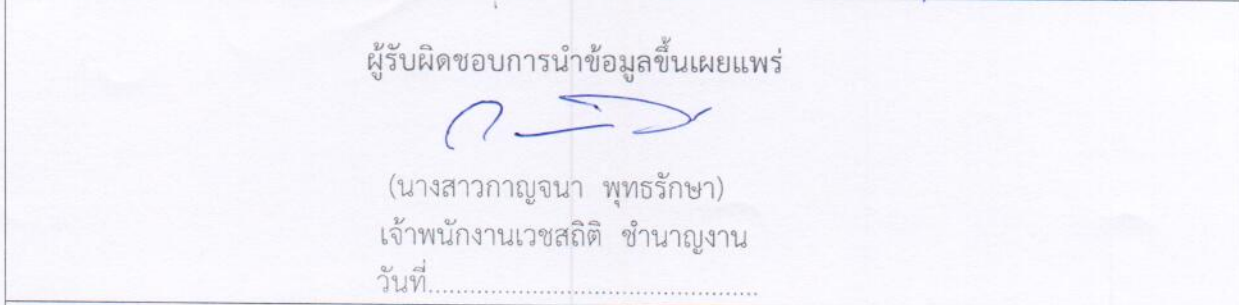 ผู้รับผิดชอบการนำข้อมูลขึ้นเผยแพร่
(นางสาวกาญจนา พุทธรักษา)
เจ้าพนักงานเวชสถิติ ชำนาญงาน
วันที่.............................................